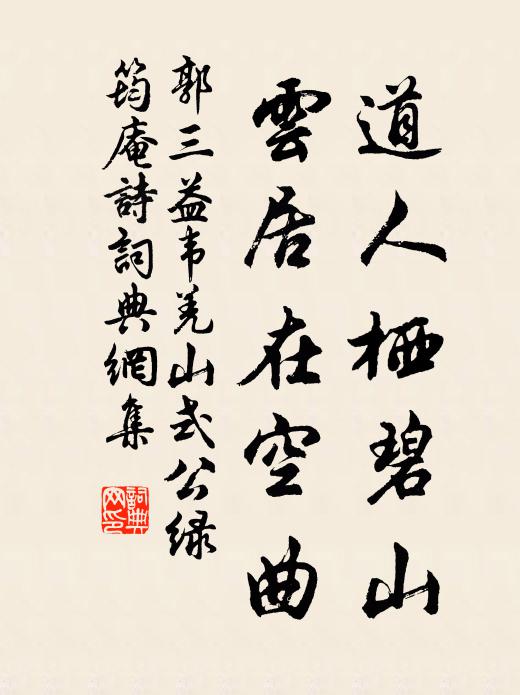 道人栖碧山
雲居在空曲
郭三益韦羌山式公绿
筠庵詩詞典網集
詞典網印